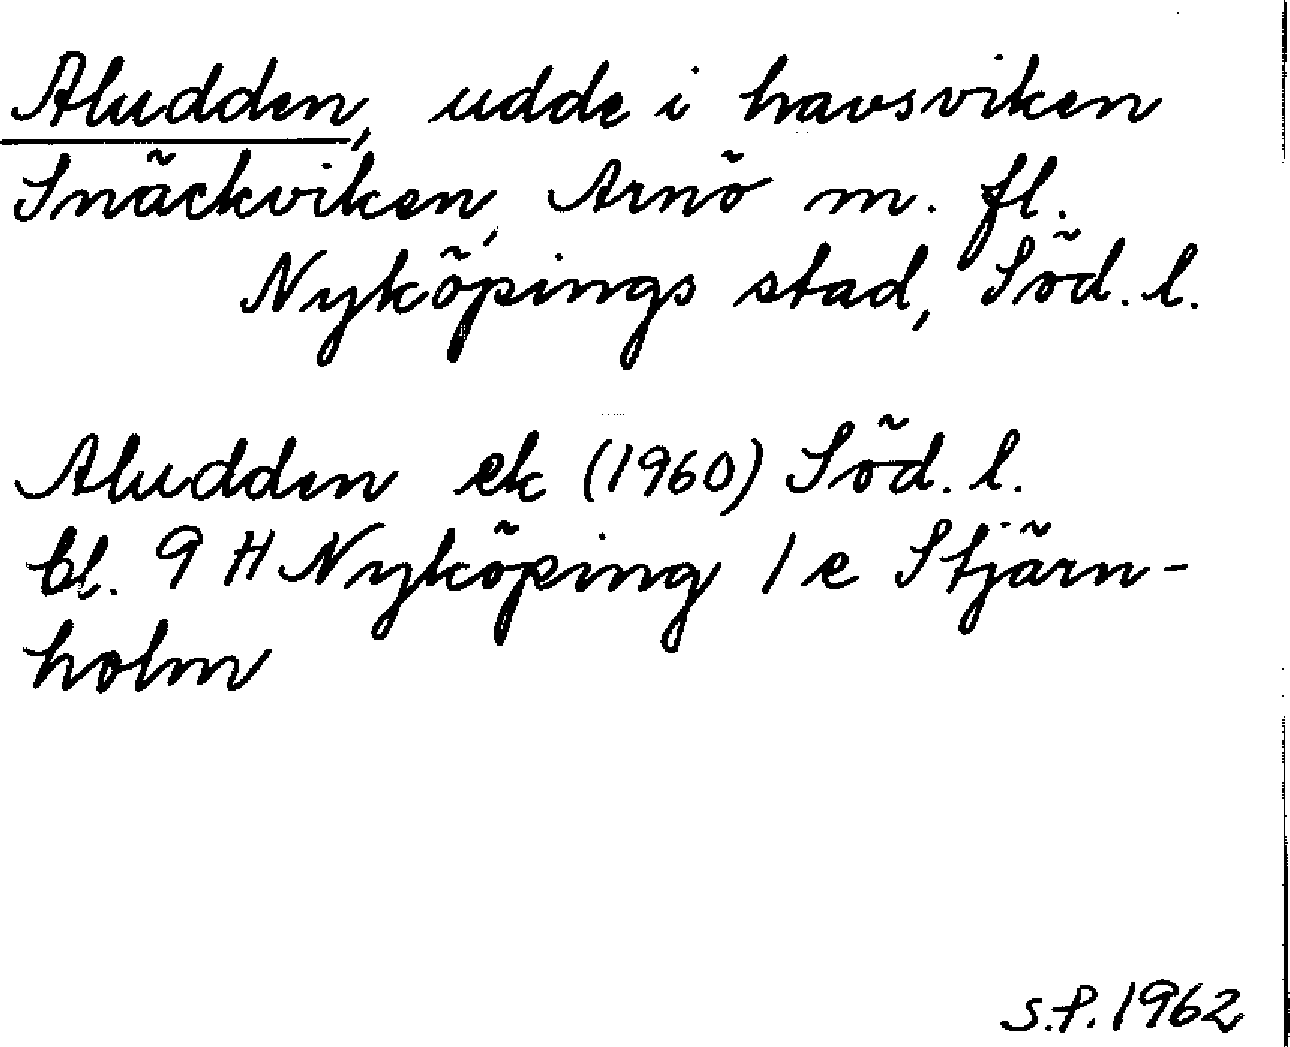 Aludden, udde i havsviken
Snäckviken, Arnö m. fl.
Nyköpings stad, Söd. l.
Aludden ek (1960) Söd. l.
bl. 9 H Nyköping 1 e Stjärn-
holm
S.P. 1962